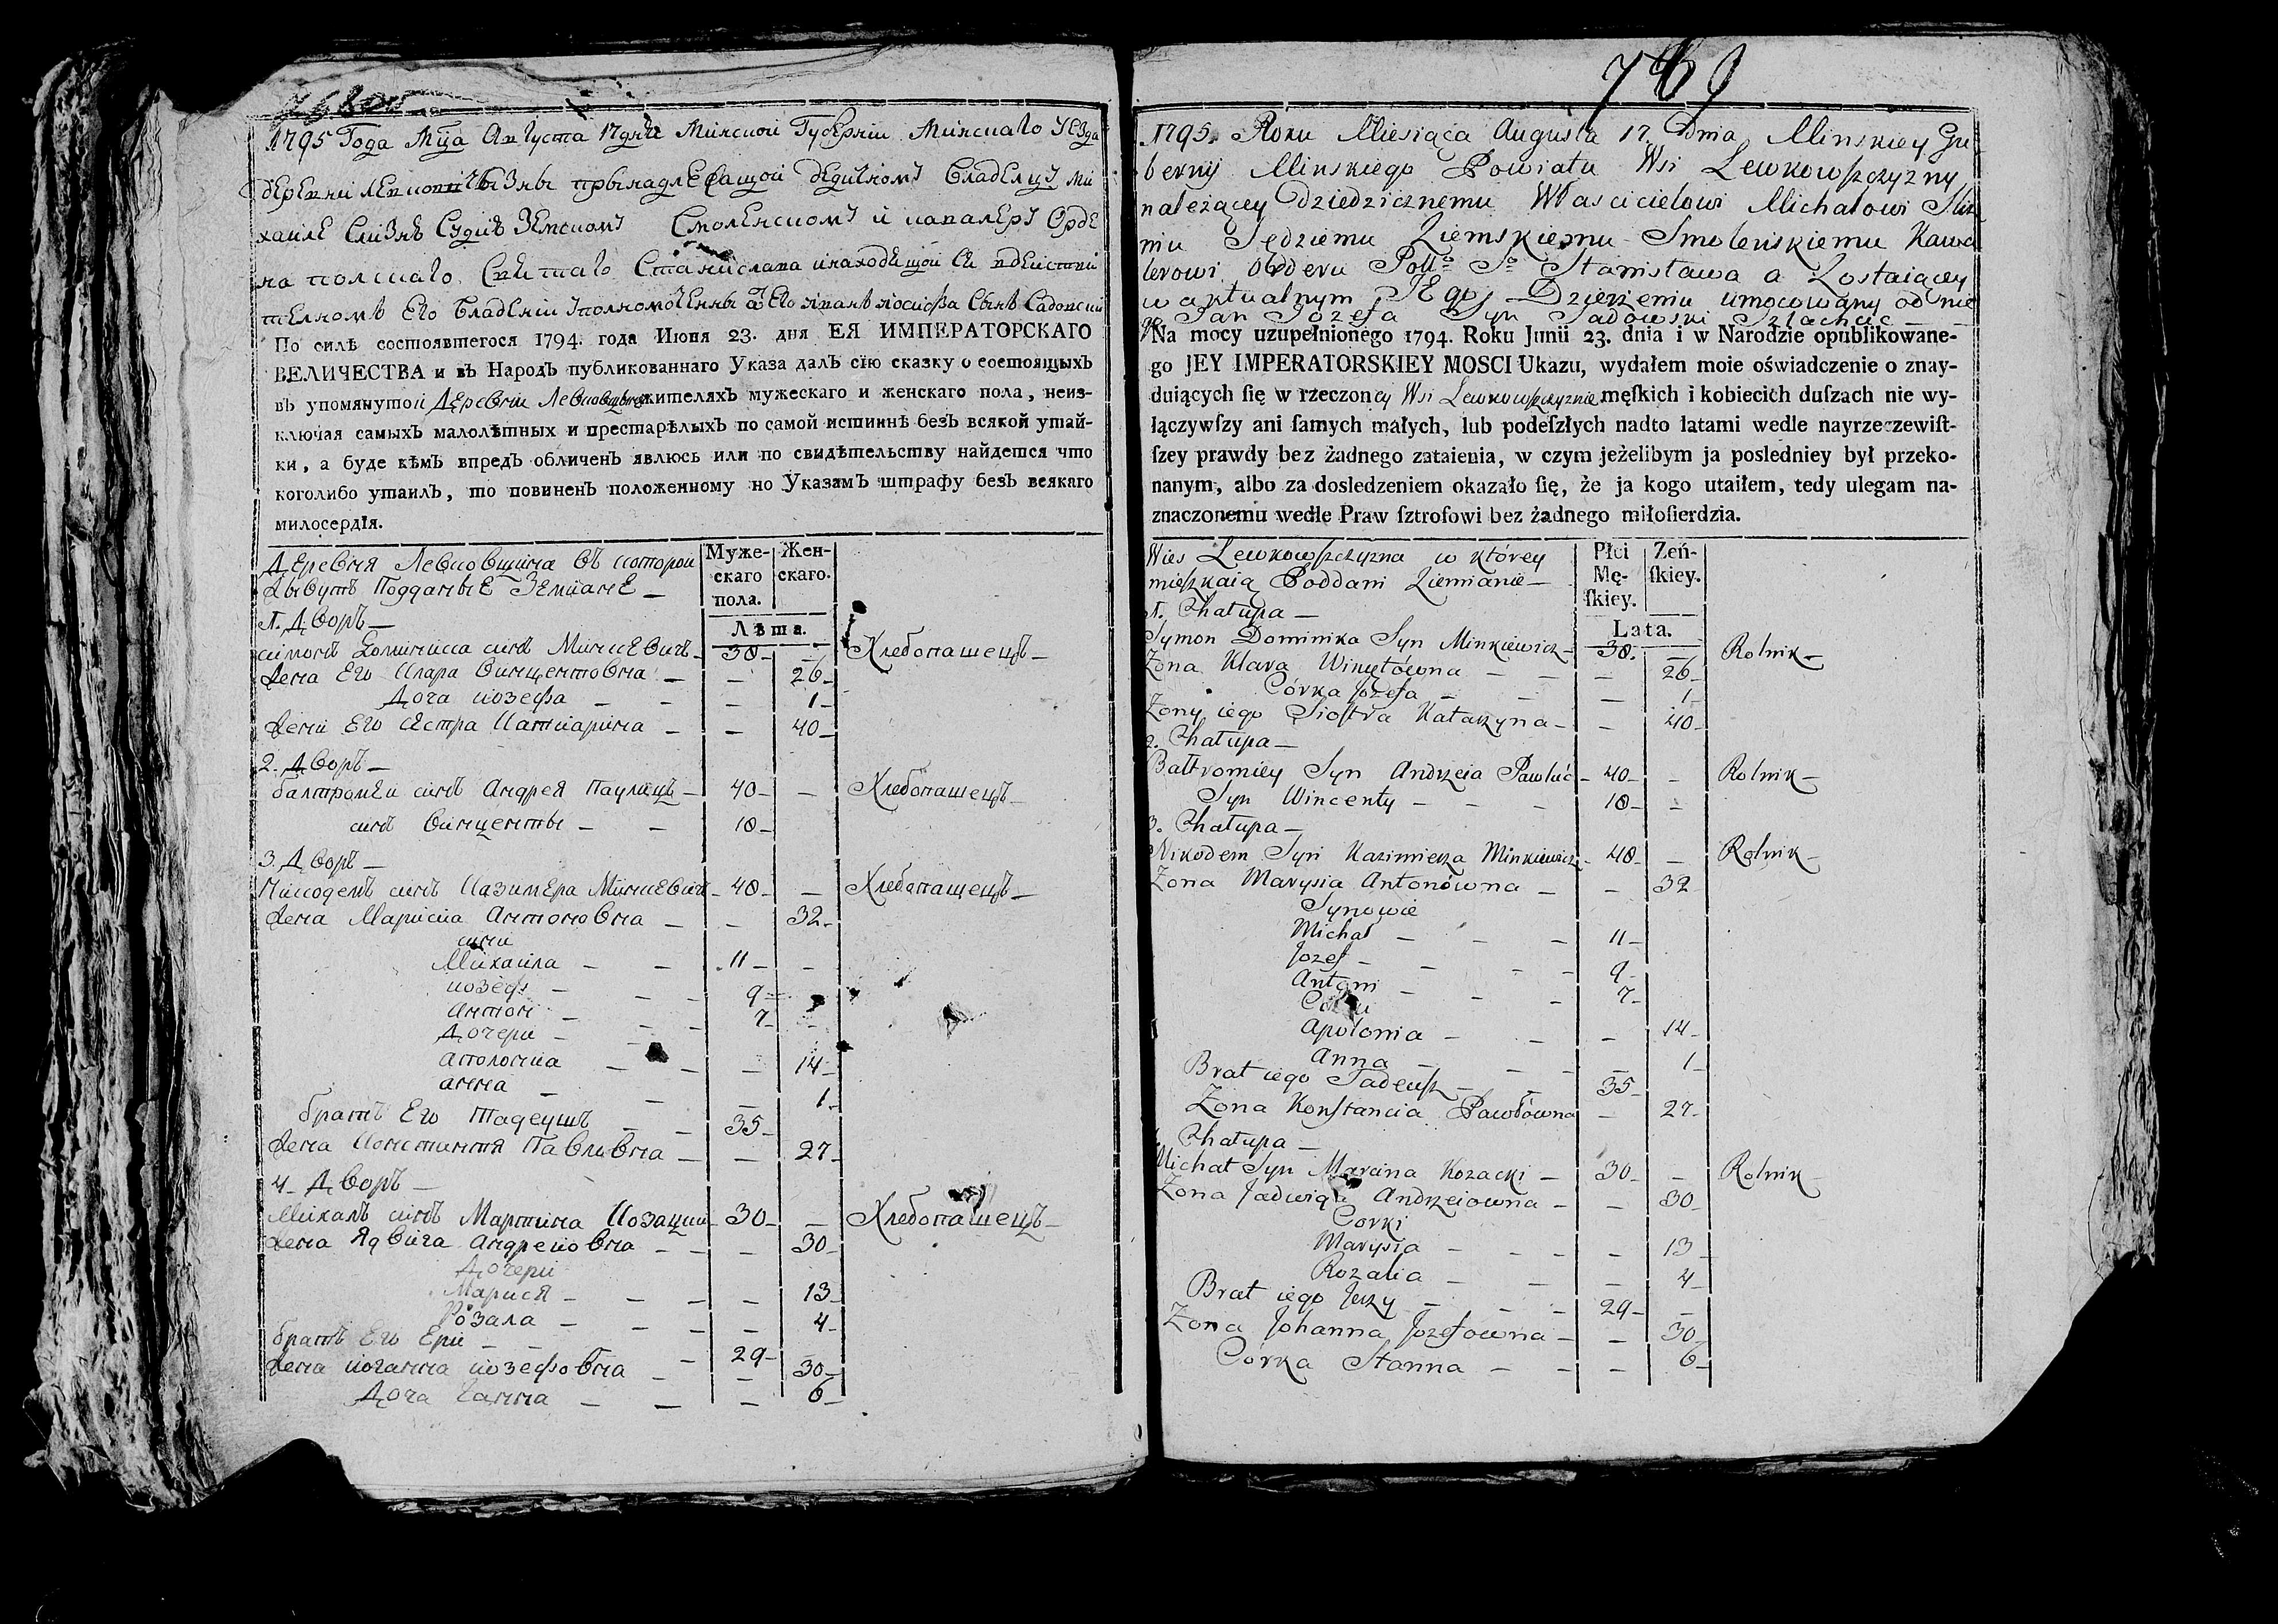 1795 Года Мца Августа 17 дня Минской Губернии Минскаго Уезда
деревни принадлежащой дедичному Владелцу Ми
хаиле Слизнѣ Судиѣ Земскому Смоленскому и кавалеру Орде
на полскаго Святаго Станислава и находящой ся в действи
телномъ Его Владении уполномоченны от Его Сынъ Садовски
По силѣ состоявшегося 1794. года Июня 23. дня ЕЯ ИМПЕРАТОРСКАГО
ВЕЛИЧЕСТВА и въ НародЪ публикованнаго Указа далЪ сію сказку о состоящыхЪ
въ упомянутой Деревни Левковщыне жителяхЪ мужескаго и женскаго пола, неиз-
ключая самыхЪ малолѣтных и престарѣлыхЪ по самой истиннѣ безЪ всякой утай-
ки, а буде кѣмЪ впредЪ обличенЪ явлюсь или по свидѣтельству найдется что
коголибо утаилЪ, то повиненЪ положенному по УказамЪ штрафу безЪ всякаго
милосердія.
Деревня Левковщина въ которои
Живутъ Подданые Земяане
Муже-
скаго
пола.
Жен-
скаго.
Лѣта.
1. Дворъ
симонъ Доминика синъ Минкевичъ 38 Хлебопашецъ
жена Его Клара Винцентовна 26
Доча иозефа 1
жени Его сестра Катиарина 40
2. Дворъ
балтромеи синъ Андрея Паулюць 40 Хлебопашецъ
синъ Винценты 18
3. Дворъ
Никодемъ синъ Казимера Минкевичъ 48 Хлебопашецъ
жена Марисиа Антоновна 32
сини
Михаила 11
иозефъ 9
Антони 7
Дочери
аполониа 14
анна 1
братъ Его Тадеушъ 35
жена Констанția Павловна 27
4 Дворъ
Михалъ синъ Мартина Козацки 30 Хлебопашецъ
жена Ядвига Андреиовна 30
Дочери
Марися 13
Розала 4
братъ Его Ери 29
жена иоганна иозефовна 30
Доча Ганна 6
769
1795. Roku Miesiąca Augusta 17. Dnia Minskiey Gu
bernij Minskiego Powiatu Wsi Lewkowszczyzny
należącey Dziedzicznemu Włascicielowi Michałowi Sliz
niu Sędziemu Ziemskiemu Smoleńskiemu Kawa
lerowi Orderu Pollo So Stanisława a Zostaiącey
w aktualnym JEgo Dzierżeniu umocowany od nie
go Jan Jozefa Syn Sadowski Szlachcic
Na mocy uzupełnionego 1794. Roku Junii 23. dnia i w Narodzie opublikowane-
go JEY IMPERATORSKIEY MOSCI Ukazu, wydałem moie oświadczenie o znay-
duiących ſię w rzeczoney Wsi Lewkowszczyznie męſkich i kobiecich duſzach nie wy-
łączywſzy ani ſamych małych, lub podeſzłych nadto latami wedle nayrzeczewiſt-
ſzey prawdy bez żadnego zataienia, w czym jeżelibym ja posledniey był przeko-
nanym, albo za dosledzeniem okazało ſię, że ja kogo utaiłem, tedy ulegam na-
znaczonemu wedle Praw ſztrofowi bez żadnego miłoſierdzia.
Wies Lewkowszczyzna w którey
mieszkaią Poddani Ziemianie
Płci
Mę-
ſkiey.
Zeń-
ſkiey.
Lata.
1. Chałupa
Symon Dominika Syn Minkiewicz 38. Rolnik
Zona Klara Wincętówna 26
Córka Jozefa 1
Zony iego Siostra Katarzyna 40
2. Chałupa
Bałtromiey Syn Andrzeia Pawluć 40 Rolnik
Syn Wincenty 18
3. Chałupa
Nikodem Syn Kazimierza Minkiewicz 48 Rolnik
Zona Marysia Antonówna 32
Synowie
Michał 11
Jozef 9
Antoni 7
Apolonia 14
Anna 1
Brat iego Tadeusz 35
Zona Konstancia Pawłówna 27
Chałupa
Michał Syn Marcina Kozacki 30 Rolnik
Zona Jadwiga Andrzeiowna 30
Corki
Marysia 13
Rozalia 4
Brat iego Jerzy 29
Zona Johanna Jozefowna 30
Córka Hanna 6